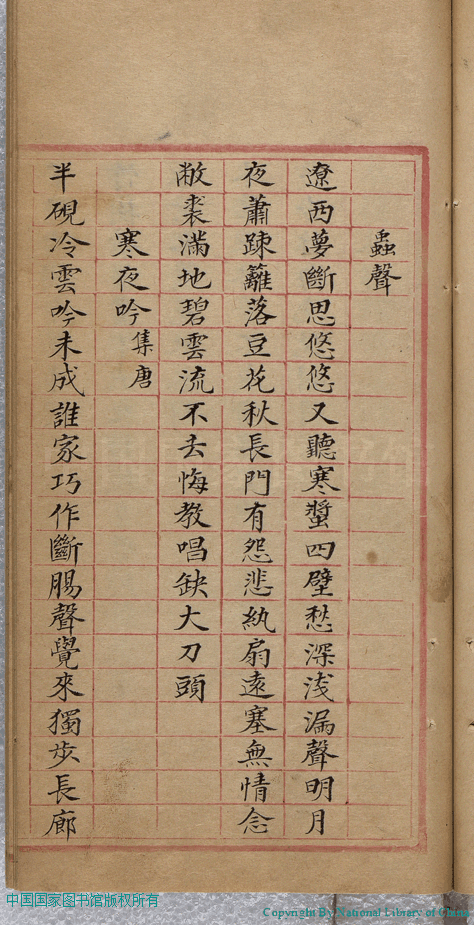 蟲聲
遼西夢斷思悠悠又聽寒螿四壁愁深浅漏聲明月
夜蕭疎籬落豆花秋長門有怨悲紈扇遠塞無情念
敝裘滿地碧雲流不去悔教唱缺大刀頭
寒夜吟集唐
半硯冷雲吟未成誰家巧作斷腸聲覺來獨步長廊
中国国家图书馆版权所有
Copyright By National Library of China